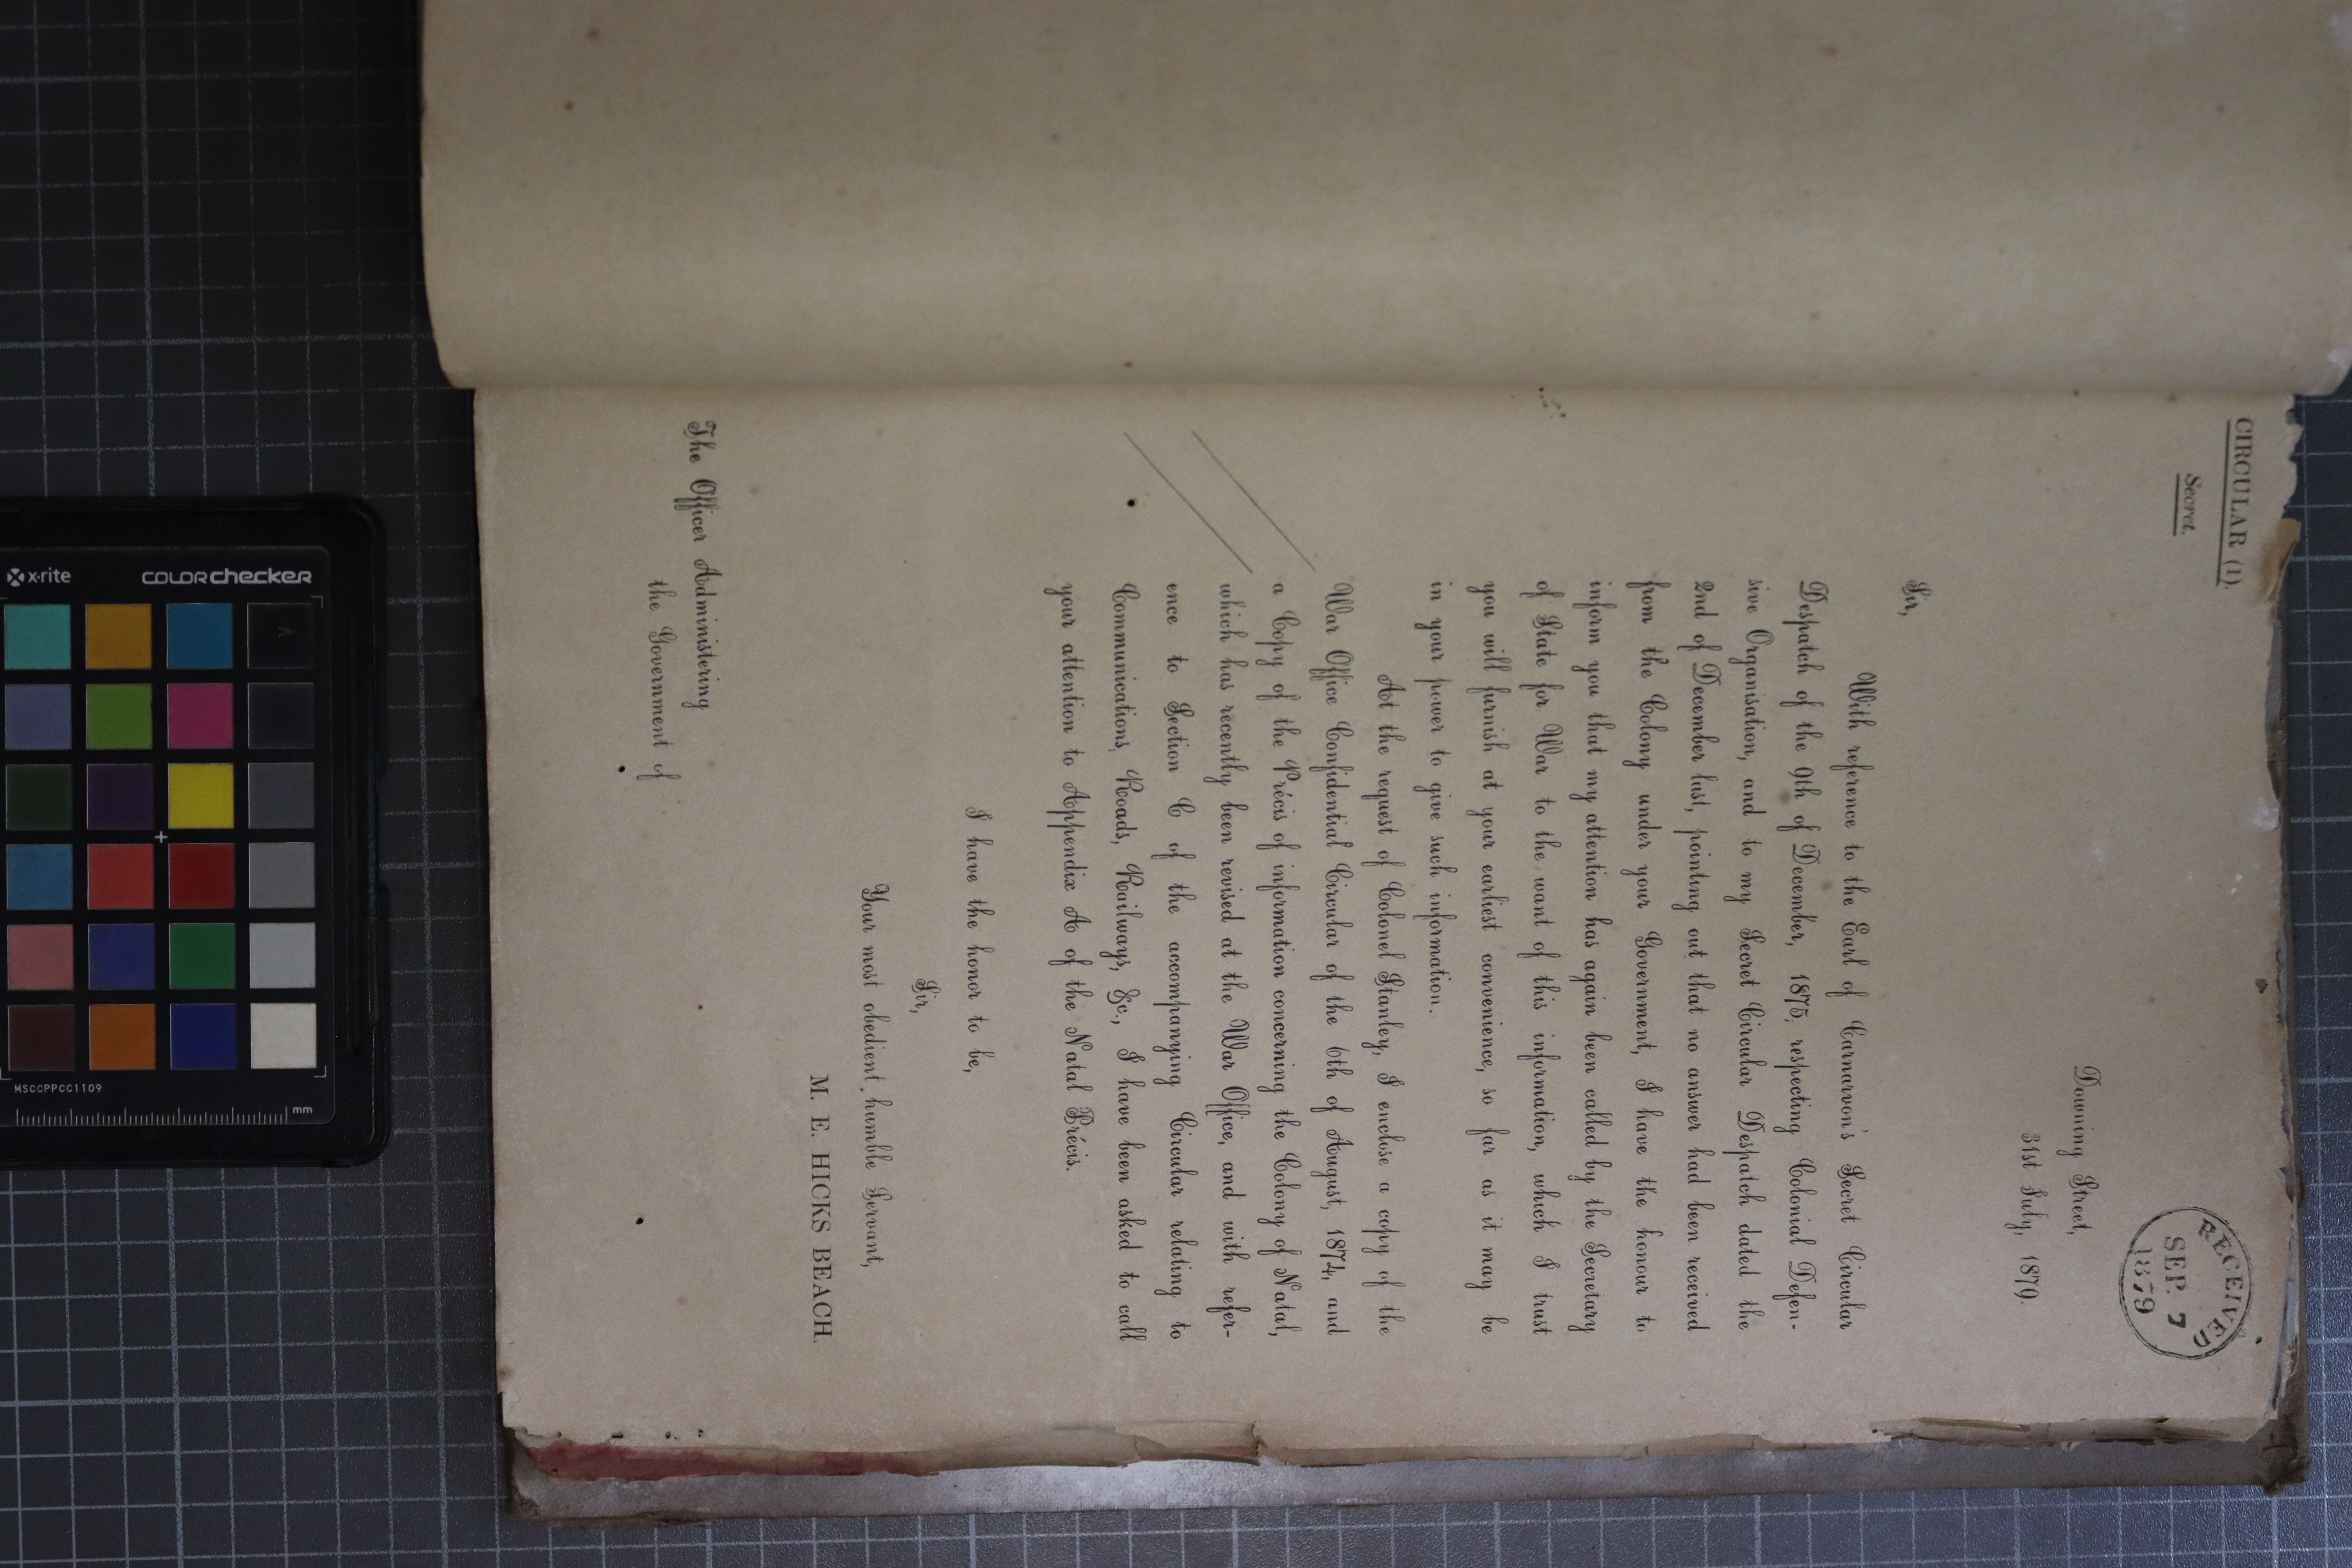 CIRCULAR (1).
Secret.
RECEIVED
SEP. 7
1879
Downing Street,
31st July, 1879.
Sir,
With reference to the Earl of Carnarvon's Secret Circular
Despatch of the 9th of December, 1875, respecting Colonial Defen-
sive Organisation, and to my Secret Circular Despatch dated the
2nd of December last, pointing out that no answer had been received
from the Colony under your Government, I have the honour to
inform you that my attention has again been called by the Secretary
of State for War to the want of this information, which I trust
you will furnish at your earliest convenience, so far as it may be
in your power to give such information.
At the request of Colonel Stanley, I enclose a copy of the
War Office Confidential Circular of the 6th of August, 1874, and
a Copy of the Précis of information concerning the Colony of Natal,
which has recently been revised at the War Office, and with refer-
ence to Section C of the accompanying Circular relating to
Communications, Roads, Railways, &c., I have been asked to call
your attention to Appendix A of the Natal Précis.
I have the honor to be,
Sir,
Your most obedient, humble Servant,
M. E. HICKS BEACH.
The Officer Administering
the Government of
x-rite
colorchecker
MSCCPPCC1109
mm